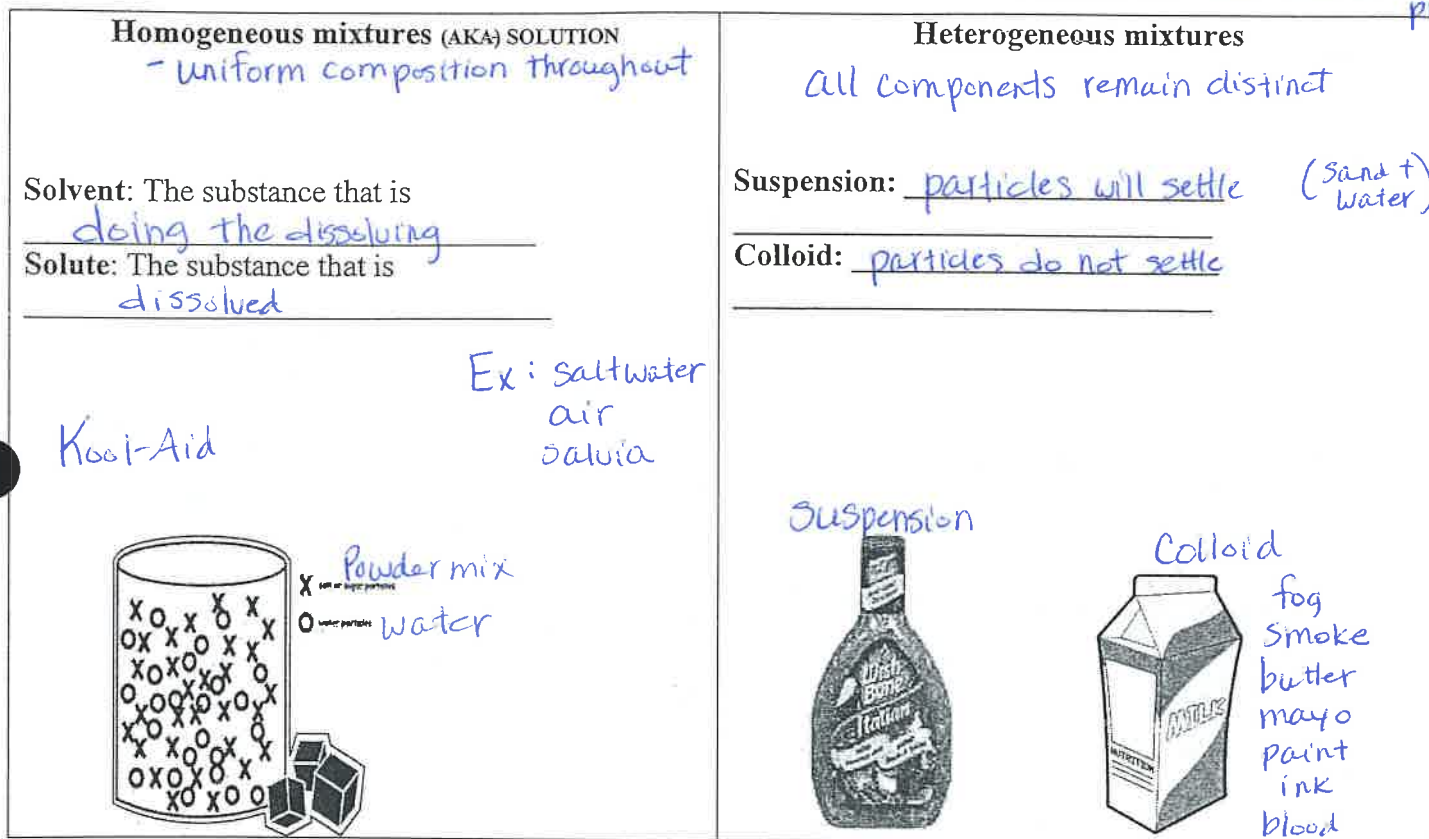 Homogeneous mixtures (AKA) SOLUTION
- uniform composition throughout
Solvent: The substance that is
doing the dissolving
Solute: The substance that is
dissolved
Ex: saltwater
air
salvia
Kool-Aid
X Powder mix
O water particles water
Heterogeneous mixtures
all components remain distinct
Suspension: particles will settle (sand +
water)
Colloid: particles do not settle
Suspension
Wish
Bone
Italian
Colloid
MILK
NUTRITION
fog
smoke
butter
mayo
paint
ink
blood